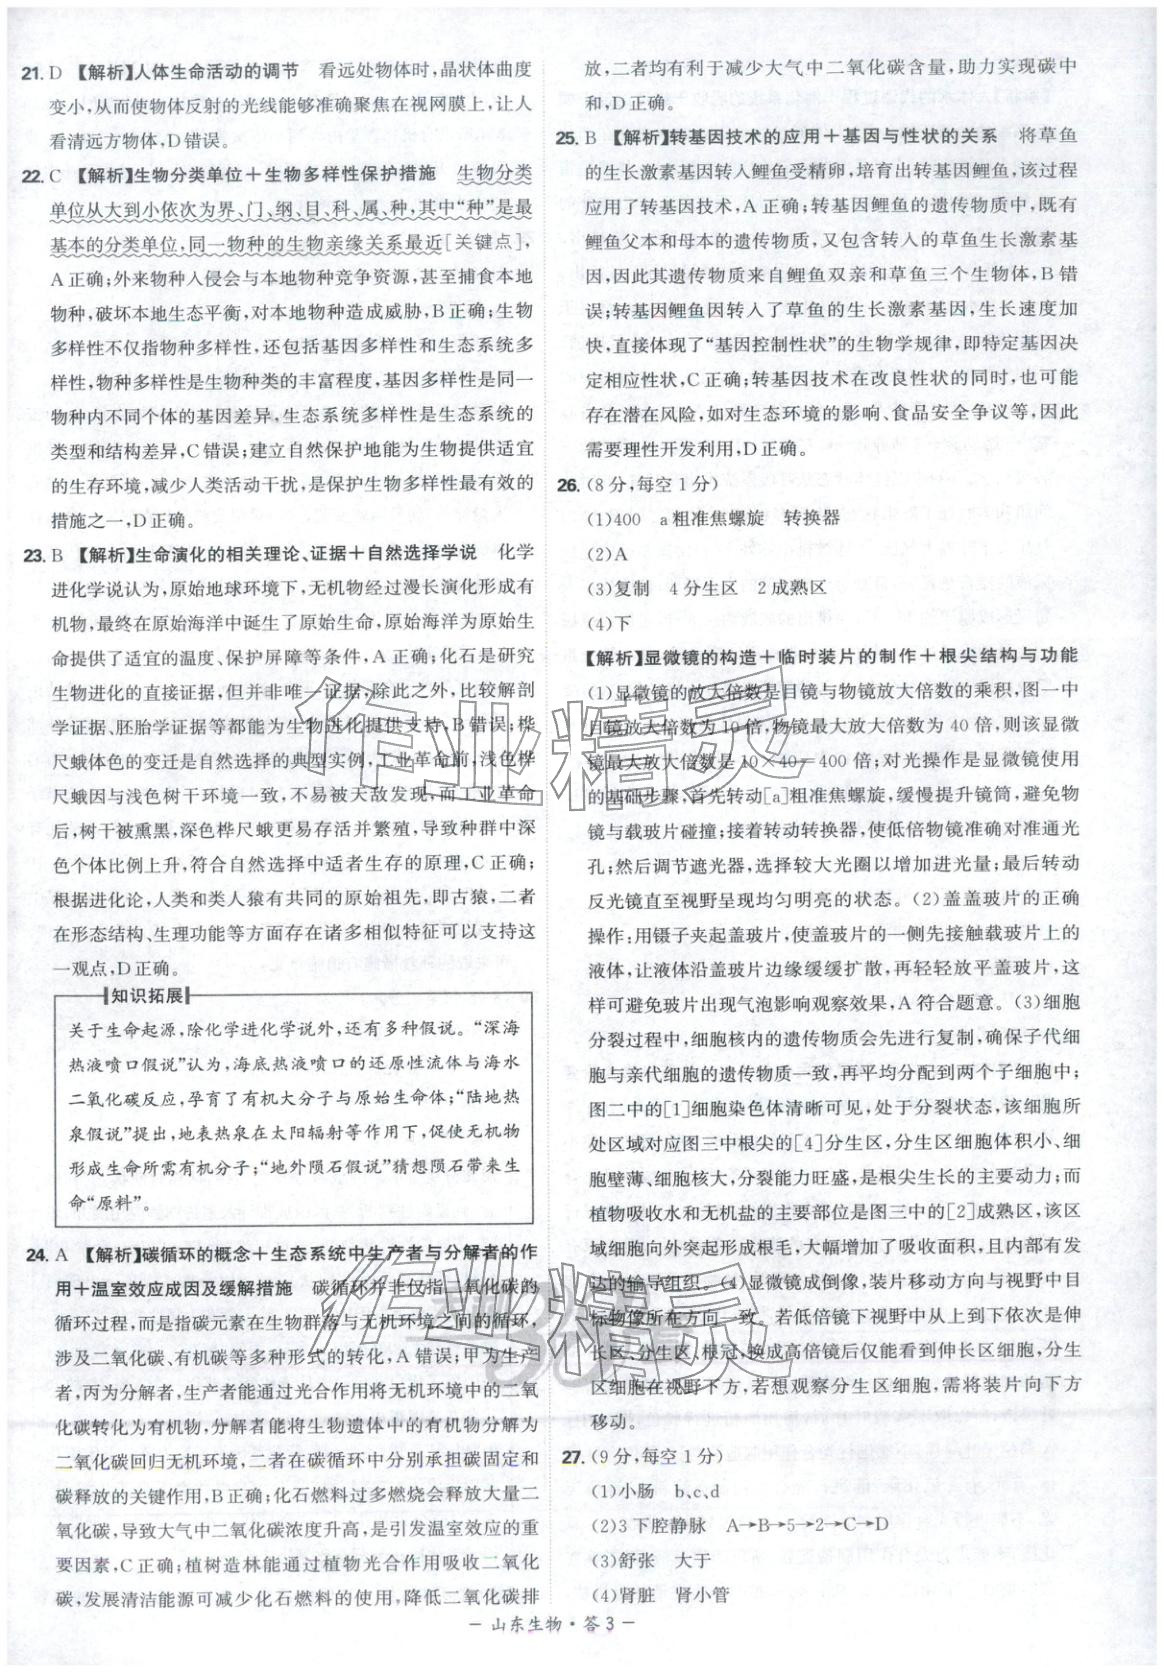 21. D 【解析】人体生命活动的调节 看远处物体时,晶状体曲度
变小,从而使物体反射的光线能够准确聚焦在视网膜上,让人
看清远方物体,D错误。
22. C 【解析】生物分类单位＋生物多样性保护措施 生物分类
单位从大到小依次为界、门、纲、目、科、属、种,其中“种”是最
基本的分类单位,同一物种的生物亲缘关系最近[关键点],
A正确;外来物种入侵会与本地物种竞争资源,甚至捕食本地
物种,破坏本地生态平衡,对本地物种造成威胁,B正确;生物
多样性不仅指物种多样性,还包括基因多样性和生态系统多
样性,物种多样性是生物种类的丰富程度,基因多样性是同一
物种内不同个体的基因差异,生态系统多样性是生态系统的
类型和结构差异,C错误;建立自然保护地能为生物提供适宜
的生存环境,减少人类活动干扰,是保护生物多样性最有效的
措施之一,D正确。
23. B 【解析】生命演化的相关理论、证据＋自然选择学说 化学
进化学说认为,原始地球环境下,无机物经过漫长演化形成有
机物,最终在原始海洋中诞生了原始生命,原始海洋为原始生
命提供了适宜的温度、保护屏障等条件,A正确;化石是研究
生物进化的直接证据,但并非唯一证据,除此之外,比较解剖
学证据、胚胎学证据等都能为生物进化提供支持,B错误;桦
尺蛾体色的变迁是自然选择的典型实例,工业革命前,浅色桦
尺蛾因与浅色树干环境一致,不易被天敌发现,而工业革命
后,树干被熏黑,深色桦尺蛾更易存活并繁殖,导致种群中深
色个体比例上升,符合自然选择中适者生存的原理,C正确;
根据进化论,人类和类人猿有共同的原始祖先,即古猿,二者
在形态结构、生理功能等方面存在诸多相似特征可以支持这
一观点,D正确。
知识拓展
关于生命起源,除化学进化学说外,还有多种假说。“深海
热液喷口假说”认为,海底热液喷口的还原性流体与海水
二氧化碳反应,孕育了有机大分子与原始生命体;“陆地热
泉假说”提出,地表热泉在太阳辐射等作用下,促使无机物
形成生命所需有机分子;“地外陨石假说”猜想陨石带来生
命“原料”。
24. A 【解析】碳循环的概念＋生态系统中生产者与分解者的作
用＋温室效应成因及缓解措施 碳循环并非仅指二氧化碳的
循环过程,而是指碳元素在生物群落与无机环境之间的循环,
涉及二氧化碳、有机碳等多种形式的转化,A错误;甲为生产
者,丙为分解者,生产者能通过光合作用将无机环境中的二氧
化碳转化为有机物,分解者能将生物遗体中的有机物分解为
二氧化碳回归无机环境,二者在碳循环中分别承担碳固定和
碳释放的关键作用,B正确;化石燃料过多燃烧会释放大量二
氧化碳,导致大气中二氧化碳浓度升高,是引发温室效应的重
要因素,C正确;植树造林能通过植物光合作用吸收二氧化
碳,发展清洁能源可减少化石燃料的使用,降低二氧化碳排
放,二者均有利于减少大气中二氧化碳含量,助力实现碳中
和,D正确。
25. B 【解析】转基因技术的应用＋基因与性状的关系 将草鱼
的生长激素基因转入鲤鱼受精卵,培育出转基因鲤鱼,该过程
应用了转基因技术,A正确;转基因鲤鱼的遗传物质中,既有
鲤鱼父本和母本的遗传物质,又包含转入的草鱼生长激素基
因,因此其遗传物质来自鲤鱼双亲和草鱼三个生物体,B错
误;转基因鲤鱼因转入了草鱼的生长激素基因,生长速度加
快,直接体现了“基因控制性状”的生物学规律,即特定基因决
定相应性状,C正确;转基因技术在改良性状的同时,也可能
存在潜在风险,如对生态环境的影响、食品安全争议等,因此
需要理性开发利用,D正确。
26. (8分,每空1分)
(1)400 a粗准焦螺旋 转换器
(2)A
(3)复制 4分生区 2成熟区
(4)下
【解析】显微镜的构造＋临时装片的制作＋根尖结构与功能
(1)显微镜的放大倍数是目镜与物镜放大倍数的乘积,图一中
目镜放大倍数为10倍,物镜最大放大倍数为40倍,则该显微
镜最大放大倍数是10×40=400倍;对光操作是显微镜使用
的基础步骤,首先转动[a]粗准焦螺旋,缓慢提升镜筒,避免物
镜与载玻片碰撞;接着转动转换器,使低倍物镜准确对准通光
孔;然后调节遮光器,选择较大光圈以增加进光量;最后转动
反光镜直至视野呈现均匀明亮的状态。(2)盖盖玻片的正确
操作:用镊子夹起盖玻片,使盖玻片的一侧先接触载玻片上的
液体,让液体沿盖玻片边缘缓缓扩散,再轻轻放平盖玻片,这
样可避免玻片出现气泡影响观察效果,A符合题意。(3)细胞
分裂过程中,细胞核内的遗传物质会先进行复制,确保子代细
胞与亲代细胞的遗传物质一致,再平均分配到两个子细胞中;
图二中的[1]细胞染色体清晰可见,处于分裂状态,该细胞所
处区域对应图三中根尖的[4]分生区,分生区细胞体积小、细
胞壁薄、细胞核大,分裂能力旺盛,是根尖生长的主要动力;而
植物吸收水和无机盐的主要部位是图三中的[2]成熟区,该区
域细胞向外突起形成根毛,大幅增加了吸收面积,且内部有发
达的输导组织。(4)显微镜成倒像,装片移动方向与视野中目
标物像所在方向一致。若低倍镜下视野中从上到下依次是伸
长区、分生区、根冠,换成高倍镜后仅能看到伸长区细胞,分生
区细胞在视野下方,若想观察分生区细胞,需将装片向下方
移动。
27. (9分,每空1分)
(1)小肠 b、c、d
(2)3下腔静脉 A→B→5→2→C→D
(3)舒张 大于
(4)肾脏 肾小管
－山东生物·答3－
作业精灵
作业精灵